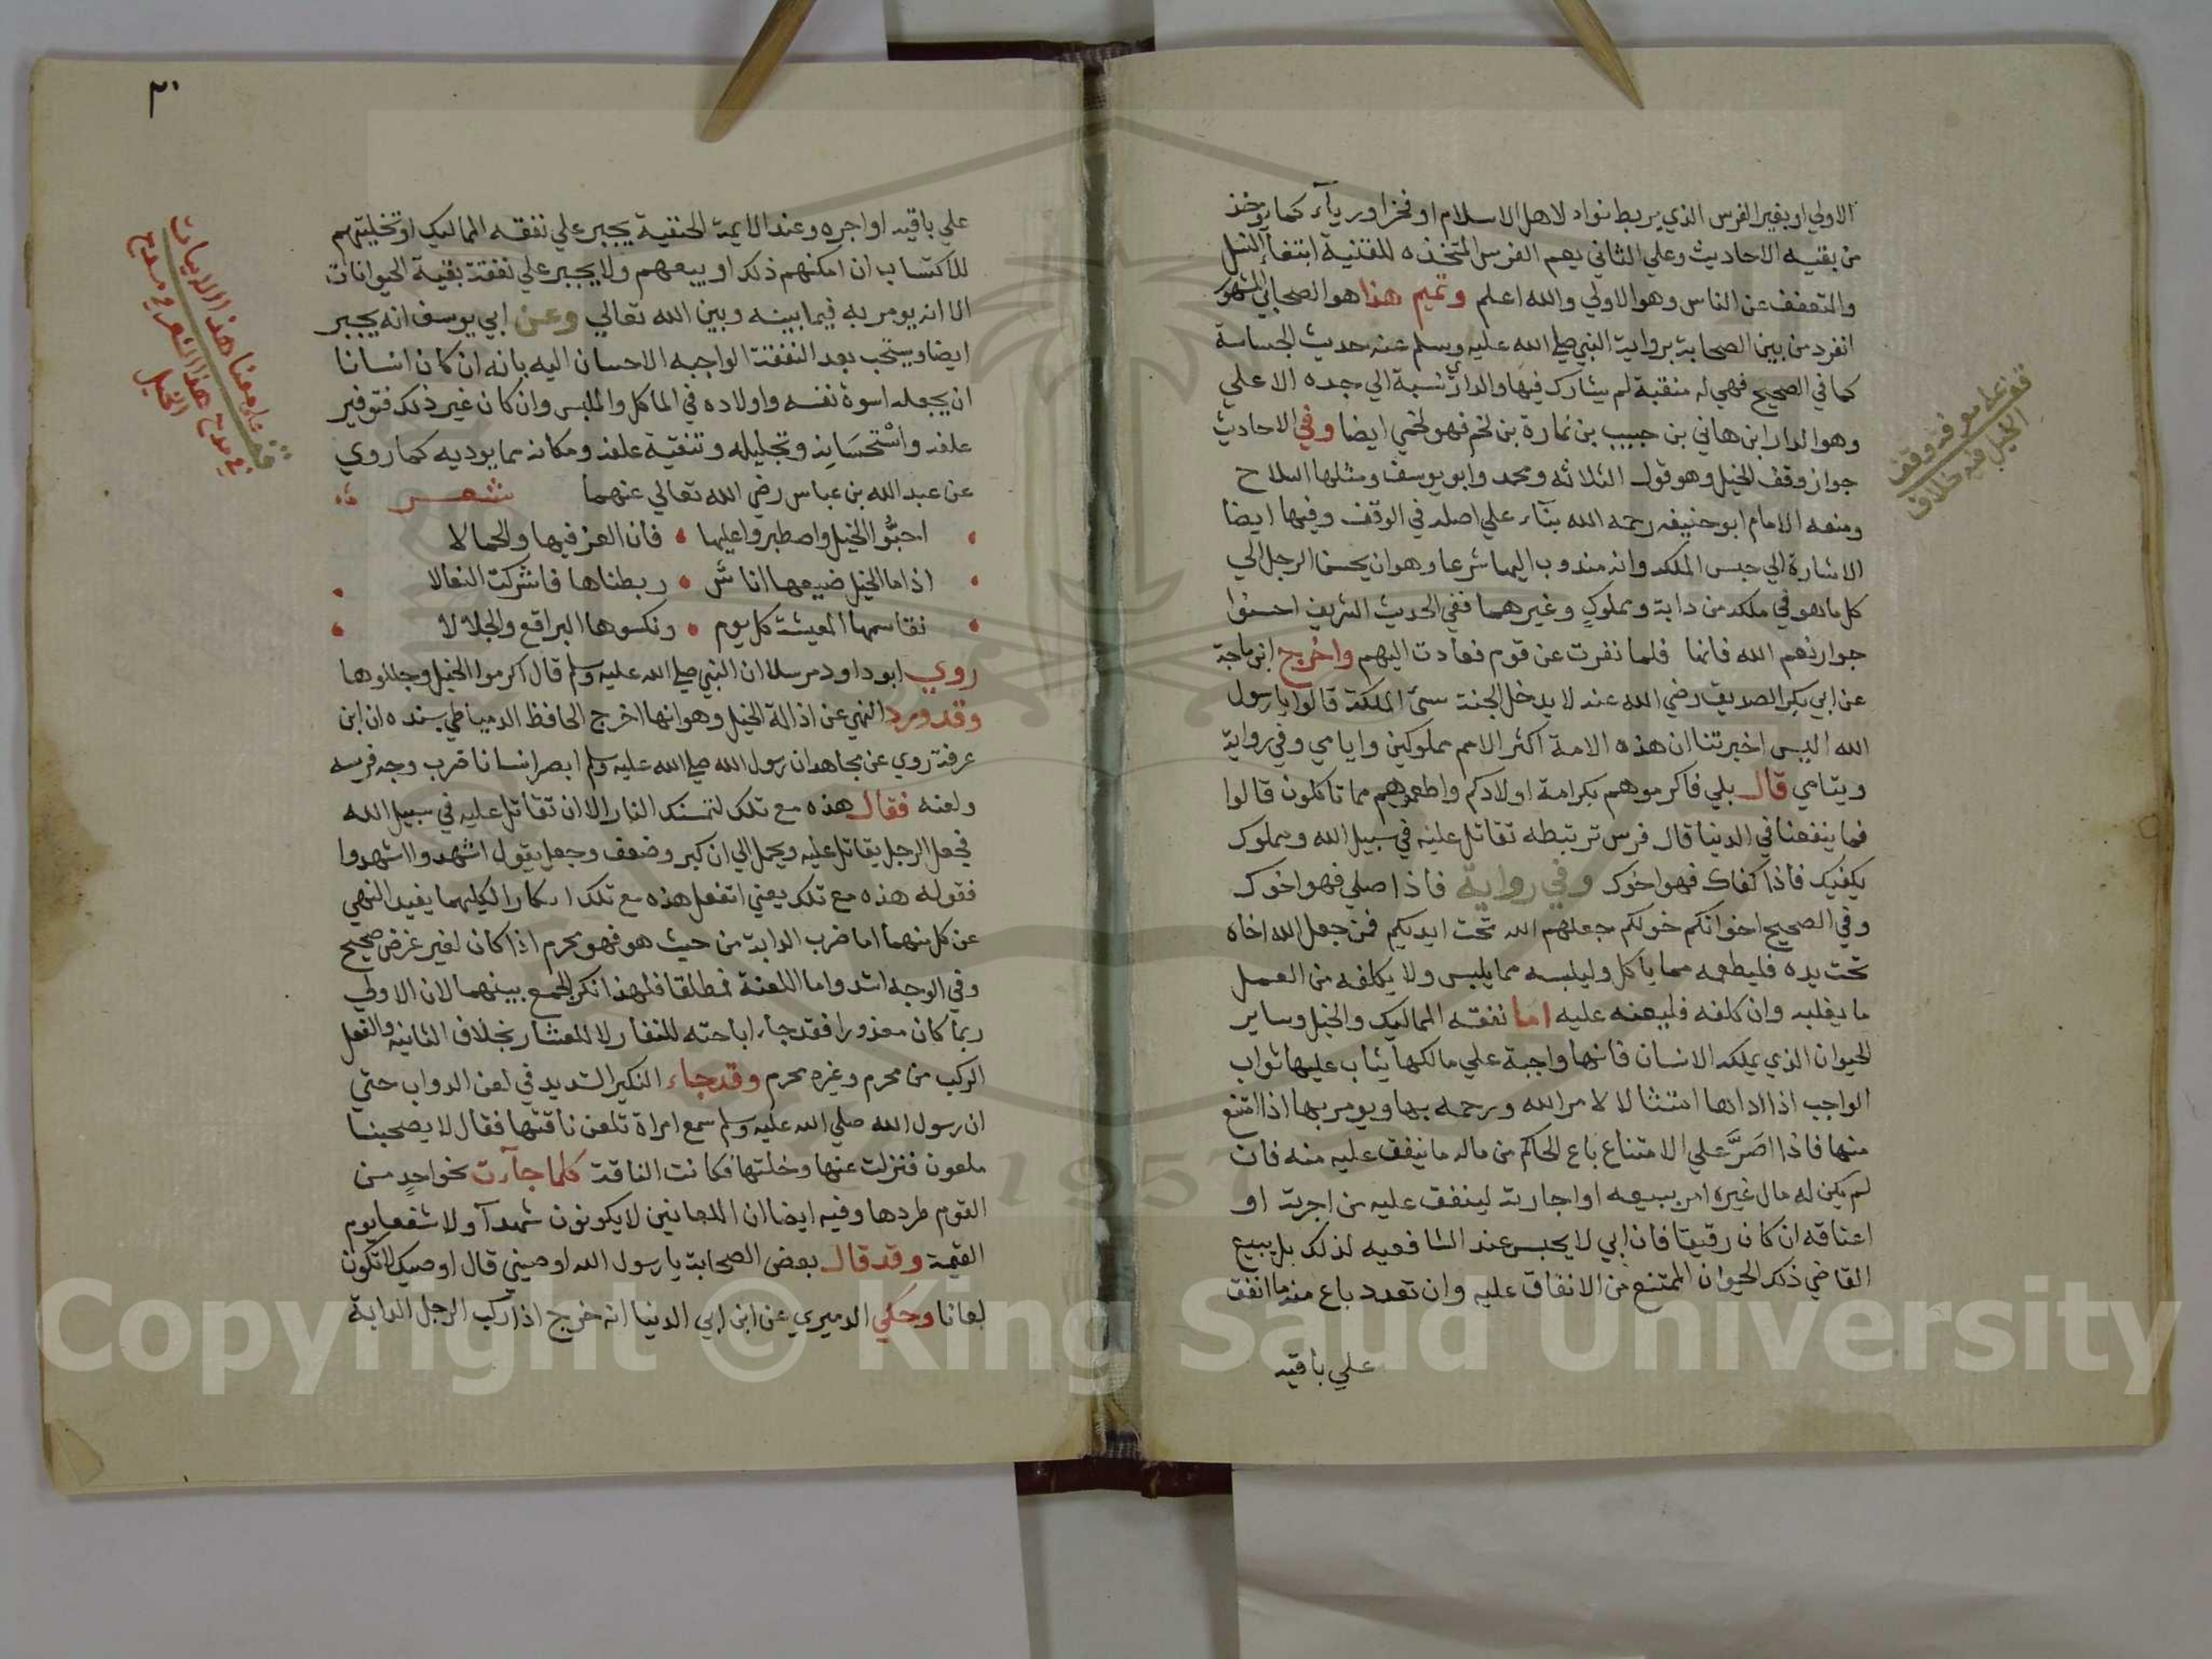 الاولي او بغير الفرس الذي يربط نواد لاهل الاسلام او فخرا ورياء كما يوخذ
من بقيه الاحاديث وعلي الثاني يعم الفرس المتخذه للقنية ابتغاء النسل
والتعفف عن الناس وهو الاولي والله اعلم وتميم هذا هو الصحابي المشهور
انفرد من بين الصحابة برواية النبي صلي الله عليه وسلم عنه حديث الجساسة
كما في الصحيح فهي له منقبة لم يشارك فيها والداري نسبة الي جده الاعلي
وهو الدار ابن هاني بن حبيب بن نمارة بن لخم فهو لخمي ايضا وفي الاحاديث
جواز وقف الخيل وهو قول الثلاثه ومحمد وابو يوسف ومثلها السلاح
ومنعه الامام ابو حنيفه رحمه الله بناء علي اصله في الوقف وفيها ايضا
الاشارة الي حبس الملك وانه مندوب اليها شرعا وهو ان يحسن الرجل الي
كل ما هو في ملكه من دابة ومملوك وغيرهما ففي الحديث الشريف احسنوا
جوار نعم الله فانها فلما نفرت عن قوم فعادت اليهم واخرج ابن ماجة
عن ابي بكر الصديق رضي الله عنه لا يدخل الجنة سيء الملكة قالوا يا رسول
الله اليس اخبرتنا ان هذه الامة اكثر الامم مملوكين وايامي وفي رواية
ويتامي قال بلي فاكرموهم بكرامة اولادكم واطعموهم مما تاكلون قالوا
فما ينفعنا في الدنيا قال فرس ترتبطه تقاتل عليه في سبيل الله ومملوك
يكفيك فاذا كفاك فهو اخوك وفي رواية فاذا صلي فهو اخوك
وفي الصحيح اخوانكم خولكم جعلهم الله تحت ايديكم فمن جعل الله اخاه
تحت يده فليطعمه مما ياكل وليلبسه مما يلبس ولا يكلفه من العمل
ما يغلبه وان كلفه فليعنه عليه اما نفقه المماليك والخيل وساير
الحيوان الذي يملكه الانسان فانها واجبة علي مالكها يثاب عليها ثواب
الواجب اذا اداها امتثالا لامر الله ورحمه بها ويومر بها اذا امتنع
منها فاذا اصَرَّ علي الامتناع باع الحاكم من ماله ما ينفق عليه منه فان
لم يكن له مال غيره امر ببيعه او اجارته لينفق عليه من اجرته او
اعتاقه ان كان رقيقا فان ابي لا يحبس عند الشافعيه لذلك بل يبيع
القاضي ذلك الحيوان الممتنع من الانفاق عليه وان تعدد باع منه ما انفق
علي باقيه
قف علي معرفة وقف
الخيل فيه خلاف
٢٠
علي باقيه او اجره وعند الايمة الحنفية يجبر علي نفقه المماليك او تخليتهم
للاكتساب ان امكنهم ذلك او بيعهم ولا يجبر علي نفقة بقية الحيوانات
الا انه يومر به فيما بينه وبين الله تعالي وعن ابي يوسف انه يجبر
ايضا ويستحب بعد النفقة الواجبه الاحسان اليه بانه ان كان انسانا
ان يجعله اسوة نفسه واولاده في الماكل والملبس وان كان غير ذلك فتوفير
علفه واستحسانه وتجليله وتنقية علفه ومكانه مما يوديه كما روي
عن عبد الله بن عباس رضي الله تعالي عنهما شعر
احبُّوا الخيل واصطبروا عليها • فان العز فيها والجمالا
اذا ما الخيل ضيعها اناس • ربطناها فاشركت العيالا
نقاسمها المعيشة كل يوم • ونكسوها البراقع والجلالا
روي ابو داود مرسلا ان النبي صلي الله عليه وسلم قال اكرموا الخيل وجللوها
وقد ورد النهي عن اذالة الخيل وهو انها اخرج الحافظ الدمياطي بسنده ان ابن
عرفة روي عن مجاهد ان رسول الله صلي الله عليه وسلم ابصر انسانا ضرب وجه فرسه
ولعنه فقال هذه مع تلك لتمسنك النار الا ان تقاتل عليه في سبيل الله
فجعل الرجل يقاتل عليه ويحمل الي ان كبر وضعف وجعل يقول اشهدوا اشهدوا
فقوله هذه مع تلك يعني اتفعل هذه مع تلك انكارا لكليهما يفيد النهي
عن كل منهما اما ضرب الدابة من حيث هو فهو محرم اذا كان لغير غرض صحيح
وفي الوجه اشد واما اللعنة فمطلقا فلهذا نكر الجمع بينهما لان الاولي
ربما كان معذورا فقد جاء اباحته للنفار لا للعثار بخلاف الثانيه والفعل
المركب من محرم وغيره محرم وقد جاء النكير الشديد في لعن الدواب حتي
ان رسول الله صلي الله عليه وسلم سمع امراة تلعن ناقتها فقال لا يصحبنا
ملعون فنزلت عنها وخلتها فكانت الناقة كلما جآءت نحو احدٍ من
القوم طردها وفيه ايضا ان اللعانين لا يكونون شهدآ ولا شفعا يوم
القيمة وقد قال بعض الصحابة يا رسول الله اوصيني قال اوصيك لا تكون
لعانا وحكي الدميري عن ابن ابي الدنيا انه خرج اذا ركب الرجل الدابة
قف علي معنا هذا الابيات
في مدح هذا الشعر في مدح
الخيل
1957
Copyright © King Saud University